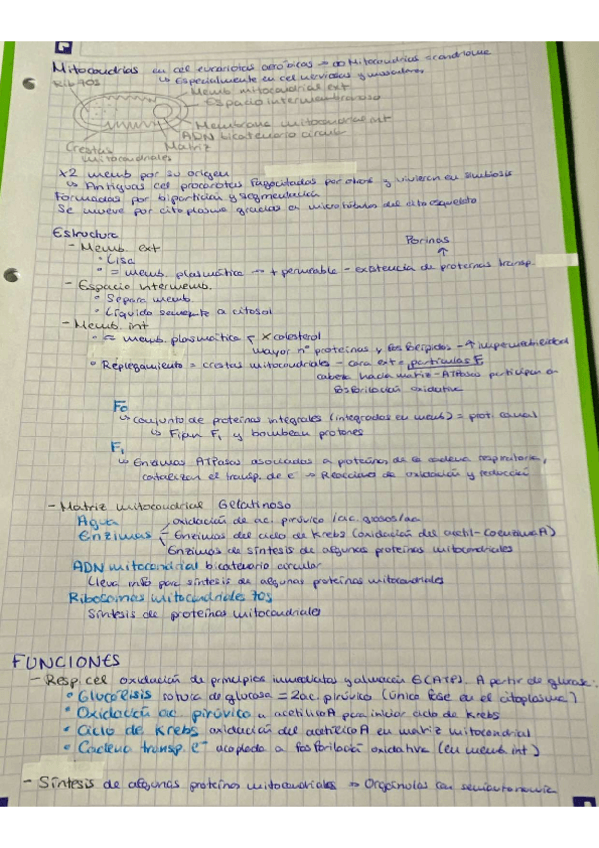 Mitocondrias en cel eucariotas aeróbicas → ∞ Mitocondrias = condrioma
↳ Especialmente en cel nerviosas y musculares
Rib 70s
Memb mitocondrial ext
Espacio intermembranoso
Membrana mitocondrial int
ADN bicatenario circular
Crestas mitocondriales
Matriz
x2 memb por su origen
↳ Antiguas cel procariotas fagocitadas por otras y vivieron en simbiosis
Formadas por bipartición y segmentación
Se mueve por citoplasma gracias a microtúbulos del citoesqueleto
Estructura
- Memb. ext
Porinas
• Lisa
• = memb. plasmática → + permeable - existencia de proteínas transp.
- Espacio Intermemb.
• Separa memb.
• Líquido semejante a citosol
- Memb. int
• = memb. plasmática x colesterol
mayor nº proteínas y fosfolípidos - ↑ impermeabilidad
• Replegamiento = crestas mitocondriales - cara ext = partículas F
cabeza hacia matriz - ATPasas participan en
fosforilación oxidativa
Fo
↳ conjunto de proteínas integrales (integradas en memb) = prot. canal
↳ Fijan F₁ y bombean protones
F₁
↳ Enzimas ATPasas asociadas a proteínas de la cadena respiratoria,
catalizan el transp. de e⁻ → Reacciones de oxidación y reducción
- Matriz mitocondrial Gelatinoso
Agua
oxidación de ac. pirúvico / ac. grasos/aa
Enzimas
Enzimas del ciclo de Krebs (oxidación del acetil-Coenzima A)
Enzimas de síntesis de algunas proteínas mitocondriales
ADN mitocondrial bicatenario circular
Lleva info para síntesis de algunas proteínas mitocondriales
Ribosomas mitocondriales 70s
Síntesis de proteínas mitocondriales
FUNCIONES
- Resp. cel oxidación de principios inmediatos y almacén E(ATP). A partir de glucosa:
• Glucólisis rotura de glucosa = 2ac. pirúvico (única fase en el citoplasma)
• Oxidación ac. pirúvico a acetilcoA para iniciar ciclo de Krebs
• Ciclo de Krebs oxidación del acetilcoA en matriz mitocondrial
• Cadena transp. e⁻ acoplada a fosforilación oxidativa (en memb int)
- Síntesis de algunas proteínas mitocondriales → Orgánulos con semiautonomía